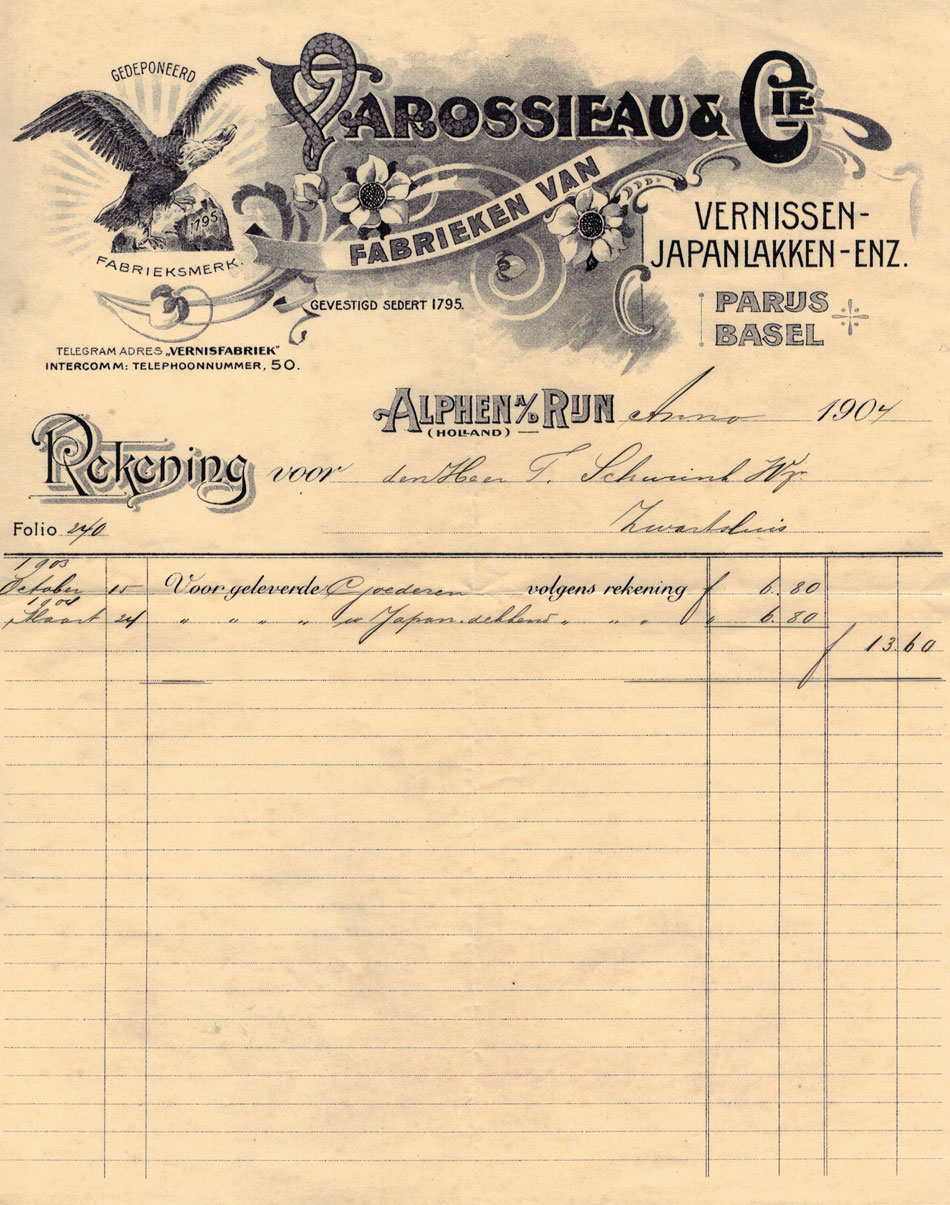 GEDEPONEERD
VAROSSIEAU & CIE
FABRIEKEN VAN
1795
FABRIEKSMERK.
VERNISSEN-
JAPANLAKKEN-ENZ.
GEVESTIGD SEDERT 1795.
PARIJS
BASEL
TELEGRAM ADRES „VERNISFABRIEK"
INTERCOMM: TELEPHOONNUMMER, 50.
ALPHEN A/D RIJN Anno 1904
(HOLLAND)
Rekening voor den Heer T. Schurink Wzn
Zwartsluis
Folio 240
1903
October 15 Voor geleverde Goederen volgens rekening f 6.80
1904
Maart 24 " " " " " Japan. dekkend " " " " 6.80
f 13.60